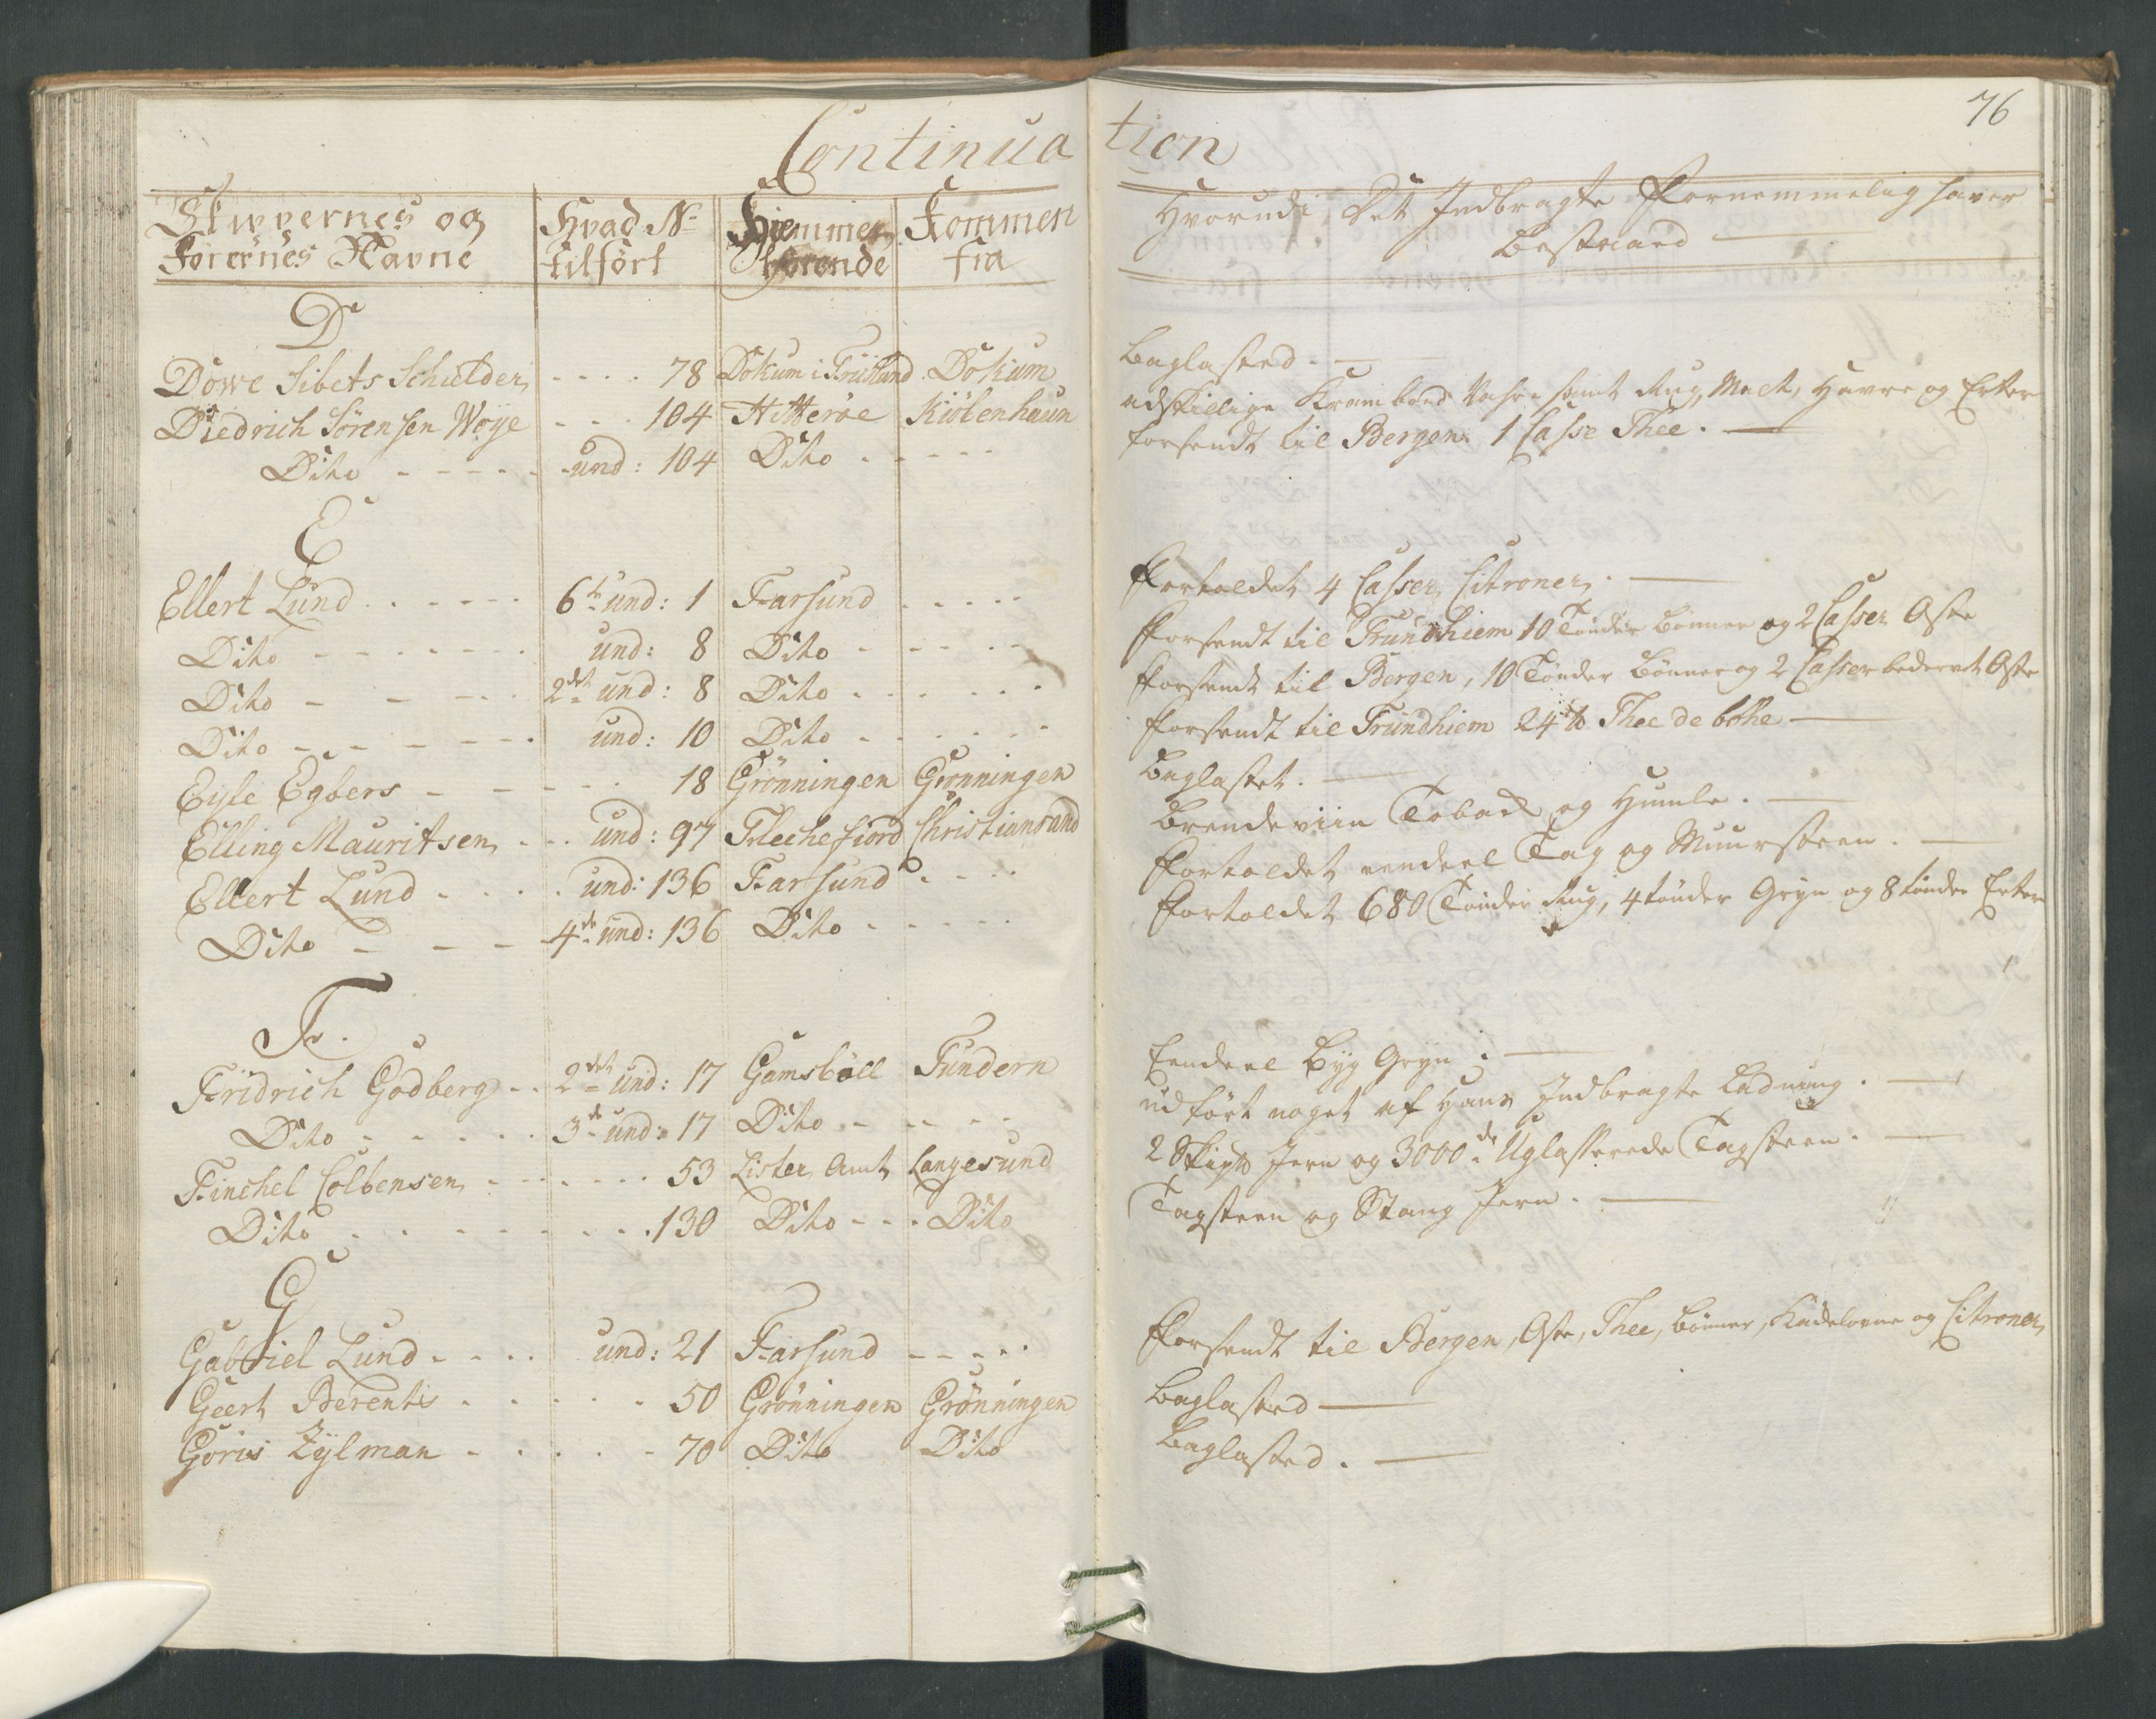 Continuation
76
Skippernes og Hvad No Hiemme Kommen Hvorudi Det Indbragte Fornemmelig haver
Førernes Navne tilført hørende fra bestaaed
D
Dowe Sibets Schulder 78 Dokum i Friisland Dokum Baglasted.
Diedrich Sörensen Woye 104 Hitteröe Kiöbenhaun adskillige Kramboed Vahre samt Rug, Malt, Havre og Erter
Dito und: 104 Dito forsendt til Bergen 1 Casse Thee.
E
Ellert Lund 6te und: 1 Farsund Fortoldet 4 Casser Citroner.
Dito und: 8 Dito Forsendt til Trundhiem 10 Tönder Bönner og 2 Casser Oste
Dito 2det und: 8 Dito Forsendt til Bergen, 10 Tönder Bönner og 2 Casser bedervet Oste
Dito und: 10 Dito Forsendt til Trundhiem 24 lb Thee de bohe
Eyle Egbers 18 Grönningen Grönningen Baglastet.
Elling Mauritsen und: 97 Flechefiord Christiansand Brendeviin Toback og Humle.
Ellert Lund und: 136 Farsund Fortoldet eendeel Tag og Muursteen.
Dito 4de und: 136 Dito Fortoldet 680 Tönder Rug, 4 tönder Gryn og 8 tönder Erter
F.
Fridrich Godberg 2det und: 17 Gamsböll Tundern Eendeel Byg Gryn.
Dito 3de und: 17 Dito udfört noget af Hans Indbragte Ladning.
Finchel Colbensen 53 Lister Amt Langesund 2 Skip lb Jern og 3000de Uglasserede Tagsteen.
Dito 130 Dito Dito Tagsteen og Stang Jern.
G
Gabriel Lund und: 21 Farsund Forsendt til Bergen, Oste, Thee, Bönner, og Citroner
Geert Berents 50 Grönningen Grönningen Baglasted
Göris Zylman 70 Dito Dito Baglasted.